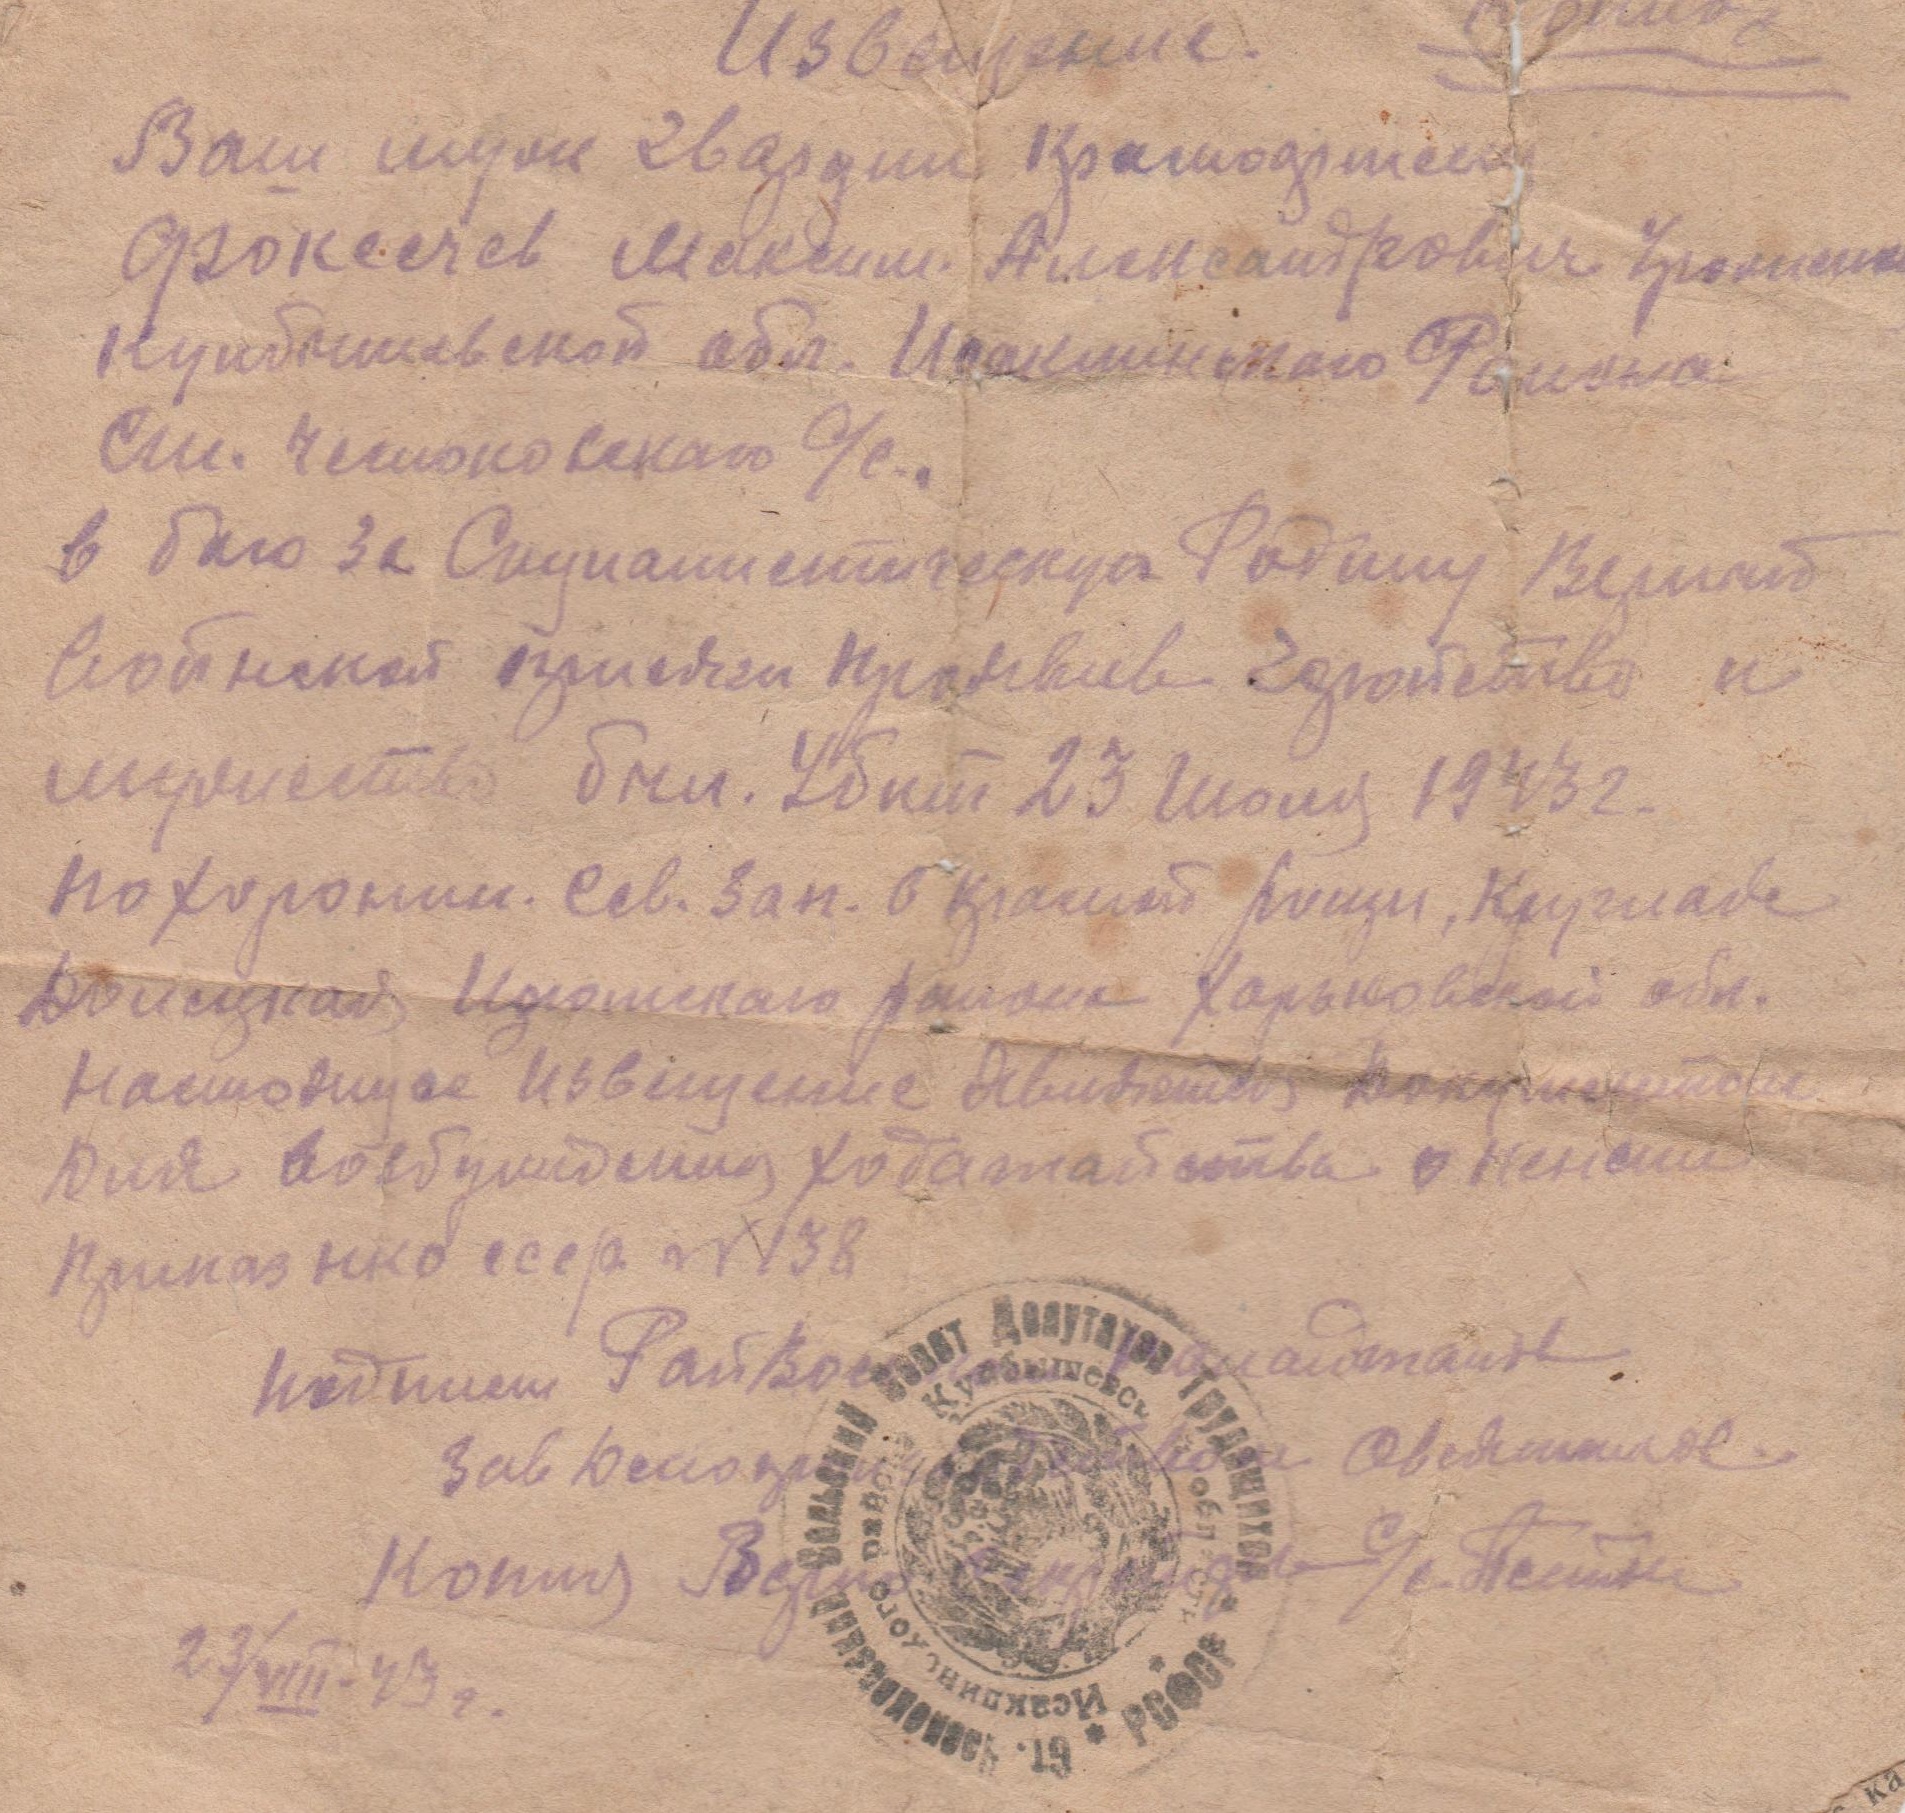 Извещение. Копия
Ваш муж гвардии Красноармеец
Фокеечев Максим. Александрович Урожен
Куибышевской обл. Исаклинского Района
См. Чесноковского С/с..
в бою за Социалистическую Родину Верный
Воинской присяги проявив Геройство и
мужество был. Убит 23 Июля 1943 г.
Похоронин. Сев. Зап. Красной рощи,
Донецкая Изюмского района Харьковской обл.
Настоящее Извещение Является Документом
Для Возбуждения ходатайства о пенсии
Приказ НКО СССР № 138
Подписи
Зав
Копия Верна С/с.
23/VIII-43 г.
Ст. Чесноковский Сельский Совет Депутатов Трудящихся * РСФСР *
Исаклинского района Куйбышевск область
ка